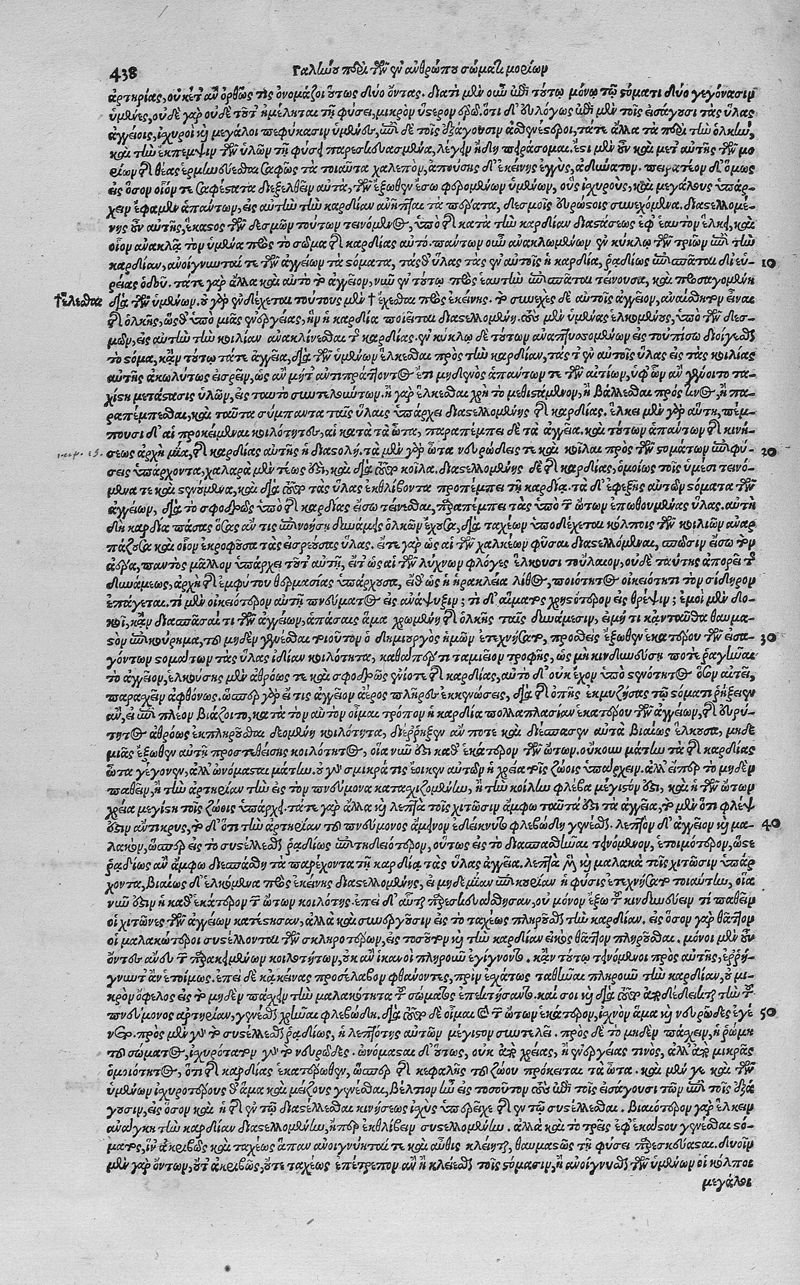 438 Γαληνοῦ περὶ τῶν ἐν ἀνθρώπου σώματι μορίων
ἀρτηρίας, οὐκέτ' ἂν ὀρθῶς τις ὀνομάζοι οὕτως δύο ὄντας. διατὶ μὲν οὖν ἐπὶ τούτῳ μόνῳ τῷ στόματι δύο γεγόνασιν
ὑμένες, οὐδὲ γὰρ οὐδὲ τοῦτ' ἠμέληται τῇ φύσει, μικρὸν ὕστερον ἐρῶ. ὅτι δ' εὐλόγως ἐπὶ μὲν τοῖς εἰσάγουσι τὰς ὕλας
ἀγγείοις, ἰσχυροὶ καὶ μεγάλοι πεφύκασιν ὑμένες, ἐπὶ δὲ τοῖς ἐξάγουσιν ἀσθενέστεροι, τά τε ἄλλα τὰ περὶ τὴν ὁλκὴν,
καὶ τὴν ἔκπεμψιν τῶν ὑλῶν τῇ φύσει παρεσκευασμένα, λέγειν ἤδη πειράσομαι. ἔστι μὲν οὖν καὶ μετ' αὐτῆς τῶν μο-
ρίων τῆς θέας ἑρμηνεύεσθαι σαφῶς τὰ τοιαῦτα χαλεπὸν, ἀπούσης δ' ἐκείνης ἐγγὺς, ἀδύνατον. πειρατέον δ' ὅμως
εἰς ὅσον οἷόν τε σαφέστατα διεξελθεῖν αὐτὰ, τῶν ἔξωθεν ἔσω φερομένων ὑμένων, οὓς ἰσχυροὺς, καὶ μεγάλους ὑπάρ-
χειν ἔφαμεν ἁπάντων, εἰς αὐτὴν τὴν καρδίαν ἀνῆπται τὰ πέρατα, δεσμοῖς εὐρώστοις συνεχόμενα. διαστελλομέ-
νης οὖν αὐτῆς, ἕκαστος τῶν δεσμῶν τούτων τεινόμενος, ὑπὸ τῆς κατὰ τὴν καρδίαν διαστάσεως ἐφ' ἑαυτὸν ἕλκει, καὶ
οἷον ἀνακλᾷ τὸν ὑμένα πρὸς τὸ σῶμα τῆς καρδίας αὐτό. πάντων οὖν ἀνακλωμένων ἐν κύκλῳ τῶν τριῶν ἐπὶ τὴν
καρδίαν, ἀνοίγνυνταί τε τῶν ἀγγείων τὰ στόματα, τάς θ' ὕλας τὰς ἐν αὐτοῖς ἡ καρδία, ῥᾳδίως ἐπισπᾶται δι' εὐ- 10
ρείας ὁδοῦ. τά τε γὰρ ἄλλα καὶ αὐτὸ τὸ ἀγγεῖον, νῦν ἐν τούτῳ πρὸς ἑαυτὴν ἐπισπᾶται τείνουσα, καὶ προσαγομένη
† ἕλεσθαι διὰ τῶν ὑμένων. οὐ γὰρ ἐνδέχεται τούτους μὲν † ἔχεσθαι πρὸς ἐκείνης. τὸ συνεχὲς δὲ αὐτοῖς ἀγγεῖον, ἀναίσθητον εἶναι
τῆς ὁλκῆς, ὥσθ' ὑπὸ μιᾶς ἐνεργείας, ἣν ἡ καρδία ποιεῖται διαστελλομένη. τοὺς μὲν ὑμένας ἑλκομένους, ὑπὸ τῶν δεσ-
μῶν, εἰς αὐτὴν τὴν κοιλίαν ἀνακλίνεσθαι τῆς καρδίας. ἐν κύκλῳ δὲ τούτων ἀναπτυσσομένων εἰς τοὐπίσω διοίγεσθαι
τὸ στόμα, κἂν τούτῳ τά τε ἀγγεῖα, διὰ τῶν ὑμένων ἕλκεσθαι πρὸς τὴν καρδίαν, τάς τ' ἐν αὐτοῖς ὕλας εἰς τὰς κοιλίας
αὐτῆς ἀκωλύτως εἰσρεῖν, ὡς ἂν μήτ' ἀντιπράττοντος ἔτι μηδενὸς ἁπάντων τε τῶν αἰτίων, ὑφ' ὧν ἂν γένοιτο τα-
χίστη μετάστασις ὑλῶν, εἰς ταυτὸ συντελούντων. ἢ γὰρ ἕλκεσθαι χρὴ τὸ μεθιστάμενον, ἢ βάλλεσθαι πρός τινος, ἢ πα-
ραπέμπεσθαι, καὶ ταῦτα σύμπαντα ταῖς ὕλαις ὑπάρχει διαστελλομένης τῆς καρδίας. ἕλκει μὲν γὰρ αὕτη, πέμ-
πουσι δ' αἱ προκείμεναι κοιλότητες, αἱ κατὰ τὰ ὦτα, παραπέμπει δὲ τὰ ἀγγεῖα. καὶ τούτων ἁπάντων τῆς κινή-
σεως ἀρχὴ μία, τῆς καρδίας αὐτῆς ἡ διαστολή. τὰ μὲν γὰρ ὦτα νευρώδεις τε καὶ κοῖλαι πρὸς τῶν στομάτων ἐπιφύ- 20
σεις ὑπάρχοντα, χαλαρὰ μὲν τέως ἐστὶ, καὶ διὰ τοῦτο κοῖλα. διαστελλομένης δὲ τῆς καρδίας, ὁμοίως τοῖς ὑμέσι τεινό-
μενα τε καὶ στενούμενα, καὶ διὰ τοῦτο τὰς ὕλας ἐκθλίβοντα προπέμπει τῇ καρδίᾳ. τὰ δ' ἐφεξῆς αὐτῶν στόματα τῶν
ἀγγείων, διὰ τὸ σφοδρῶς ὑπὸ τῆς καρδίας ἔσω τείνεσθαι, παραπέμπει τὰς ὑπὸ τῶν ὤτων ἐπωθουμένας ὕλας. αὐτὴ
δὴ καρδία πάσας ὅσας ἄν τις ἐπινοήσῃ δυνάμεις ὁλκῶν ἔχουσα, διὰ ταχέων ὑποδέχεται κόλποις τῶν κοιλιῶν ἀναρ-
πάζουσα καὶ οἷον ἐκροφοῦσα τὰς εἰσρεούσας ὕλας. εἴτε γὰρ ὡς αἱ τῶν χαλκέων φῦσαι διαστελλόμεναι, σπῶσιν εἴσω τὸν
ἀέρα, παντὸς μᾶλλον ὑπάρχει τοῦτ' αὐτῇ, εἴτ' ὡς αἱ τῶν λύχνων φλόγες ἕλκουσι τοὔλαιον, οὐδὲ ταύτης ἀπορεῖ τῆς
δυνάμεως, ἀρχὴ τῆς ἐμφύτου θερμασίας ὑπάρχουσα, εἴθ' ὡς ἡ ἡρακλεία λίθος, ποιότητος οἰκειότητι τὸν σίδηρον
ἐπάγεται. τί μὲν οἰκειότερον αὐτῇ πνεύματος εἰς ἀνάψυξιν; τί δ' αἵματος χρηστότερον εἰς θρέψιν; ἐμοὶ μὲν δο-
κεῖ, κἂν διασπᾶσαί τι τῶν ἀγγείων, ἁπάσαις ἅμα χρωμένη τῆς ὁλκῆς ταῖς δυνάμεσιν, εἰ μή τι κἀνταῦθα θαυμα-
στὸν ἐπικούρημα, τοῦ μηδὲν γενέσθαι τοιοῦτον ὁ δημιουργὸς ἡμῶν ἐτεχνήσατο, προθεὶς ἔξωθεν ἑκατέρου τῶν εἰσα- 30
γόντων στομάτων τὰς ὕλας ἰδίαν κοιλότητα, καθάπερ τι ταμιεῖον τροφῆς, ὡς μὴ κινδυνεύσῃ ποτὲ ῥαγῆναι
τὸ ἀγγεῖον, ἑλκούσης μὲν ἀθρόως τε καὶ σφοδρῶς ἐνίοτε τῆς καρδίας, αὐτὸ δ' οὐκ ἔχον ὑπὸ στενότητος ὅσον αἰτεῖ,
παρασχεῖν ἀφθόνως. ὥσπερ γὰρ εἴ τις ἀγγεῖον ἀέρος πλῆρες ἐκκενώσεις, διὰ τῆς ὀπῆς ἐκμυζήσας τῷ στόματι ῥήξειεν
ἂν, εἰ ἐπὶ πλέον βιάζοιτο, κατὰ τὸν αὐτὸν οἶμαι τρόπον ἡ καρδία πολλαπλασίαν ἑκατέρου τῶν ἀγγείων, τῆς εὐρύ-
τητος ἀθρόως ἐκπληρῶσαι δεομένη κοιλότητα, διέῤῥηξεν ἄν ποτε καὶ διέσπασεν αὐτὰ βιαίως ἕλκουσα, μηδε-
μιᾶς ἔξωθεν αὐτῇ προστεθείσης κοιλότητος, οἵα νῦν ἐστι καθ' ἑκάτερον τῶν ὤτων. οὔκουν μάτην τὰ τῆς καρδίας
ὦτα γέγονεν, ἀλλ' ὠνόμασται μάτην. οὐ γὰρ σμικρά τις ἔοικεν αὐτῶν ἡ χρεία τοῖς ζώοις ὑπάρχειν. ἀλλ' εἴπερ τὸ μηδὲν
παθεῖν, ἢ τὴν ἀρτηρίαν τὴν εἰς τὸν πνεύμονα κατασχιζομένην, ἢ τὴν κοίλην φλέβα μέγιστόν ἐστι, καὶ ἡ τῶν ὤτων
χρεία μεγίστη τοῖς ζώοις ὑπάρχει. τά τε γὰρ ἄλλα καὶ λεπτὰ τοῖς χιτῶσιν ἄμφω ταῦτά ἐστι τὰ ἀγγεῖα, τὸ μὲν ὅτι φλὲψ
ἐστὶν ἄντικρυς, τὸ δ' ὅτι τὴν ἀρτηρίαν τοῦ πνεύμονος ἄμεινον ἐδείκνυτο φλεβώδη γενέσθαι. λεπτὸν δ' ἀγγεῖον καὶ μα- 40
λακὸν, ὥσπερ εἰς τὸ συνέλκεσθαι ῥᾳδίως ἐπιτηδειότερον, οὕτως εἰς τὸ διασπᾶσθαι τεινόμενον, ἑτοιμότερον, ὥστε
ῥᾳδίως ἂν ἄμφω διεσπάσθη τὰ παρέχοντα τῇ καρδίᾳ τὰς ὕλας ἀγγεῖα. λεπτὰ γὰρ καὶ μαλακὰ τοῖς χιτῶσιν ὑπάρ-
χοντα, βιαίως δ' ἑλκόμενα πρὸς ἐκείνης διαστελλομένης, εἰ μηδεμίαν ἐπικουρίαν ἡ φύσις ἐτεχνήσατο τοιαύτην, οἵα
νῦν ἐστιν ἡ καθ' ἑκάτερον τῶν ὤτων κοιλότης. ἐπεὶ δ' αὗται παρεσκευάσθησαν, οὐ μόνον ἔξω τοῦ κινδυνεύειν τι παθεῖν
οἱ χιτῶνες τῶν ἀγγείων κατέστησαν, ἀλλὰ καὶ συνεργοῦσιν εἰς τὸ ταχέως πληροῦσθαι τὴν καρδίαν. εἰς ὅσον γὰρ θᾶττον
οἱ μαλακώτεροι συστέλλονται τῶν σκληροτέρων, εἰς τοσοῦτον καὶ τὴν καρδίαν εἰκὸς θᾶττον πληροῦσθαι. μόνοι μὲν οὖν
ὄντες ἄνευ τῶν προκειμένων κοιλοτήτων, οὐκ ἂν ἱκανοὶ πληροῦν ἐγίγνοντο. κἂν τούτῳ τεινόμενοι πρὸς αὐτῆς, ἐῤῥή-
γνυντ' ἂν ἑτοίμως. ἐπεὶ δὲ κἀκείνας προσέλαβον φθανούσας, πρὶν ἐσχάτως ταθῆναι πληροῦν τὴν καρδίαν, οὐ μι-
κρὸν ὄφελος εἰς τὸ μηδὲν πάσχειν τὴν μαλακότητα τοῦ σώματος ἐπεκτήσαντο. καί σοι καὶ διὰ τοῦτο ἀποδέδεικται τὴν τοῦ
πνεύμονος ἀρτηρίαν, γενέσθαι χρῆναι φλεβώδη. διὰ τοῦτο δὲ οἶμαι καὶ τῶν ὤτων ἑκάτερον, ἰσχνὸν ἅμα καὶ νευρῶδες ἐγέ- 50
νετο. πρὸς μὲν γὰρ τὸ συστέλλεσθαι ῥᾳδίως, ἡ λεπτότης αὐτῶν μέγιστον συντελεῖ. πρὸς δὲ τὸ μηδὲν πάσχειν, ἡ ῥώμη
τοῦ σώματος, ἰσχυρότατον γὰρ τὸ νευρῶδες. ὠνόμασται δ' οὕτως, οὐκ ἀπὸ χρείας, ἢ ἐνεργείας τινὸς, ἀλλ' ἀπὸ μικρᾶς
ὁμοιότητος, ὅτι τῆς καρδίας ἑκατέρωθεν, ὥσπερ τῆς κεφαλῆς τοῦ ζώου πρόκειται τὰ ὦτα. καὶ μὲν γε καὶ τῶν
ὑμένων ἰσχυροτέρους θ' ἅμα καὶ μείζους γενέσθαι, βέλτιον ἦν εἰς τοσοῦτον τοὺς ἐπὶ τοῖς εἰσάγουσι τῶν ἐπὶ τοῖς ἐξά-
γουσιν, εἰς ὅσον καὶ ἡ τῆς ἐν τῷ διαστέλλεσθαι κινήσεως ἰσχὺς ὑπερεῖχε τῆς ἐν τῷ συστέλλεσθαι. βιαιότερον γὰρ ἕλκειν
ἀνάγκη τὴν καρδίαν διαστελλομένην, ἤπερ ἐκθλίβειν συστελλομένην. ἀλλὰ καὶ τὸ τρεῖς ἐφ' ἑκάστου γενέσθαι στό-
ματος, ἵν' ἀκριβῶς καὶ ταχέως ἅπαν ἀνοιγνύηταί τε καὶ αὖθις κλείηται, θαυμαστῶς τῇ φύσει παρεσκεύασται. δυοῖν
μὲν γὰρ ὄντων, οὔτ' ἀκριβῶς, οὔτε ταχέως ἐπέτρεπον ἂν ἢ κλείεσθαι τοῖς στόμασιν, ἢ ἀνοίγνυσθαι τῶν ὑμένων οἱ κόλποι
μεγάλοι